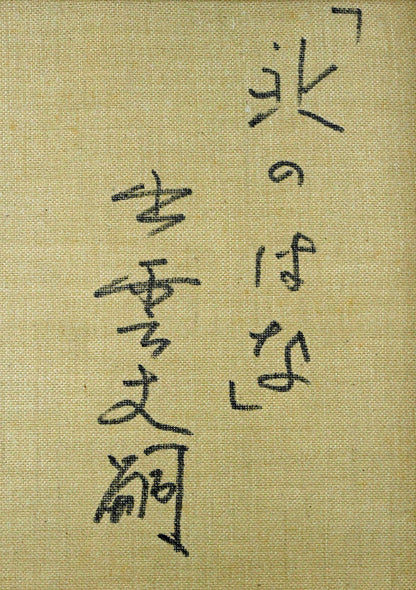 「氷のはな」
出雲文嗣